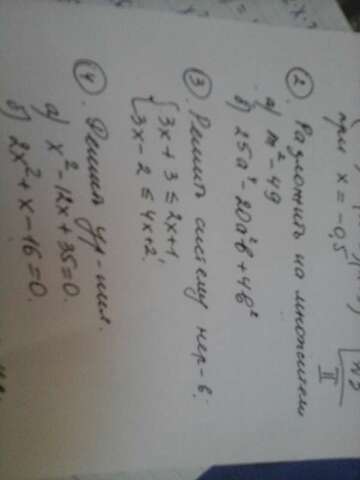 при x = -0,5
II
② Разложить на множители
а) m² - 49
б) 25a⁴ - 20a²b + 4b²
③. Решить систему нер-в:
{ 3x + 3 ≤ 2x+1,
3x - 2 ≤ 4x+2;
④. Решить ур-ния.
а) x² - 12x + 35 = 0.
б) 2x² + x - 16 = 0.